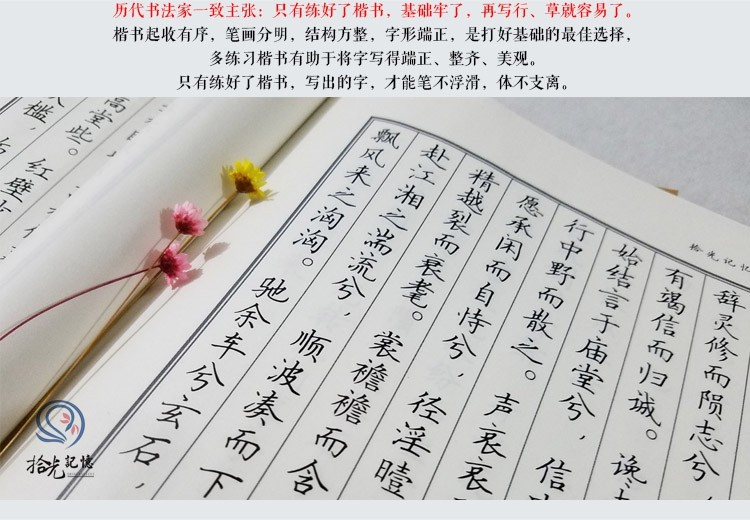 历代书法家一致主张：只有练好了楷书，基础牢了，再写行、草就容易了。
楷书起收有序，笔画分明，结构方整，字形端正，是打好基础的最佳选择，
多练习楷书有助于将字写得端正、整齐、美观。
只有练好了楷书，写出的字，才能笔不浮滑，体不支离。
拾光记忆
辞灵修而陨志兮，
有竭信而归诚。谗
始结言于庙堂兮，信
行中野而散之。声哀哀
愿承闲而自恃兮，径淫曀
精越裂而衰耄。裳襜襜而含
赴江湘之湍流兮，顺波凑而下
飘风来之洶洶。驰余车兮玄石，
高堂些。
槛，红壁
拾光記憶